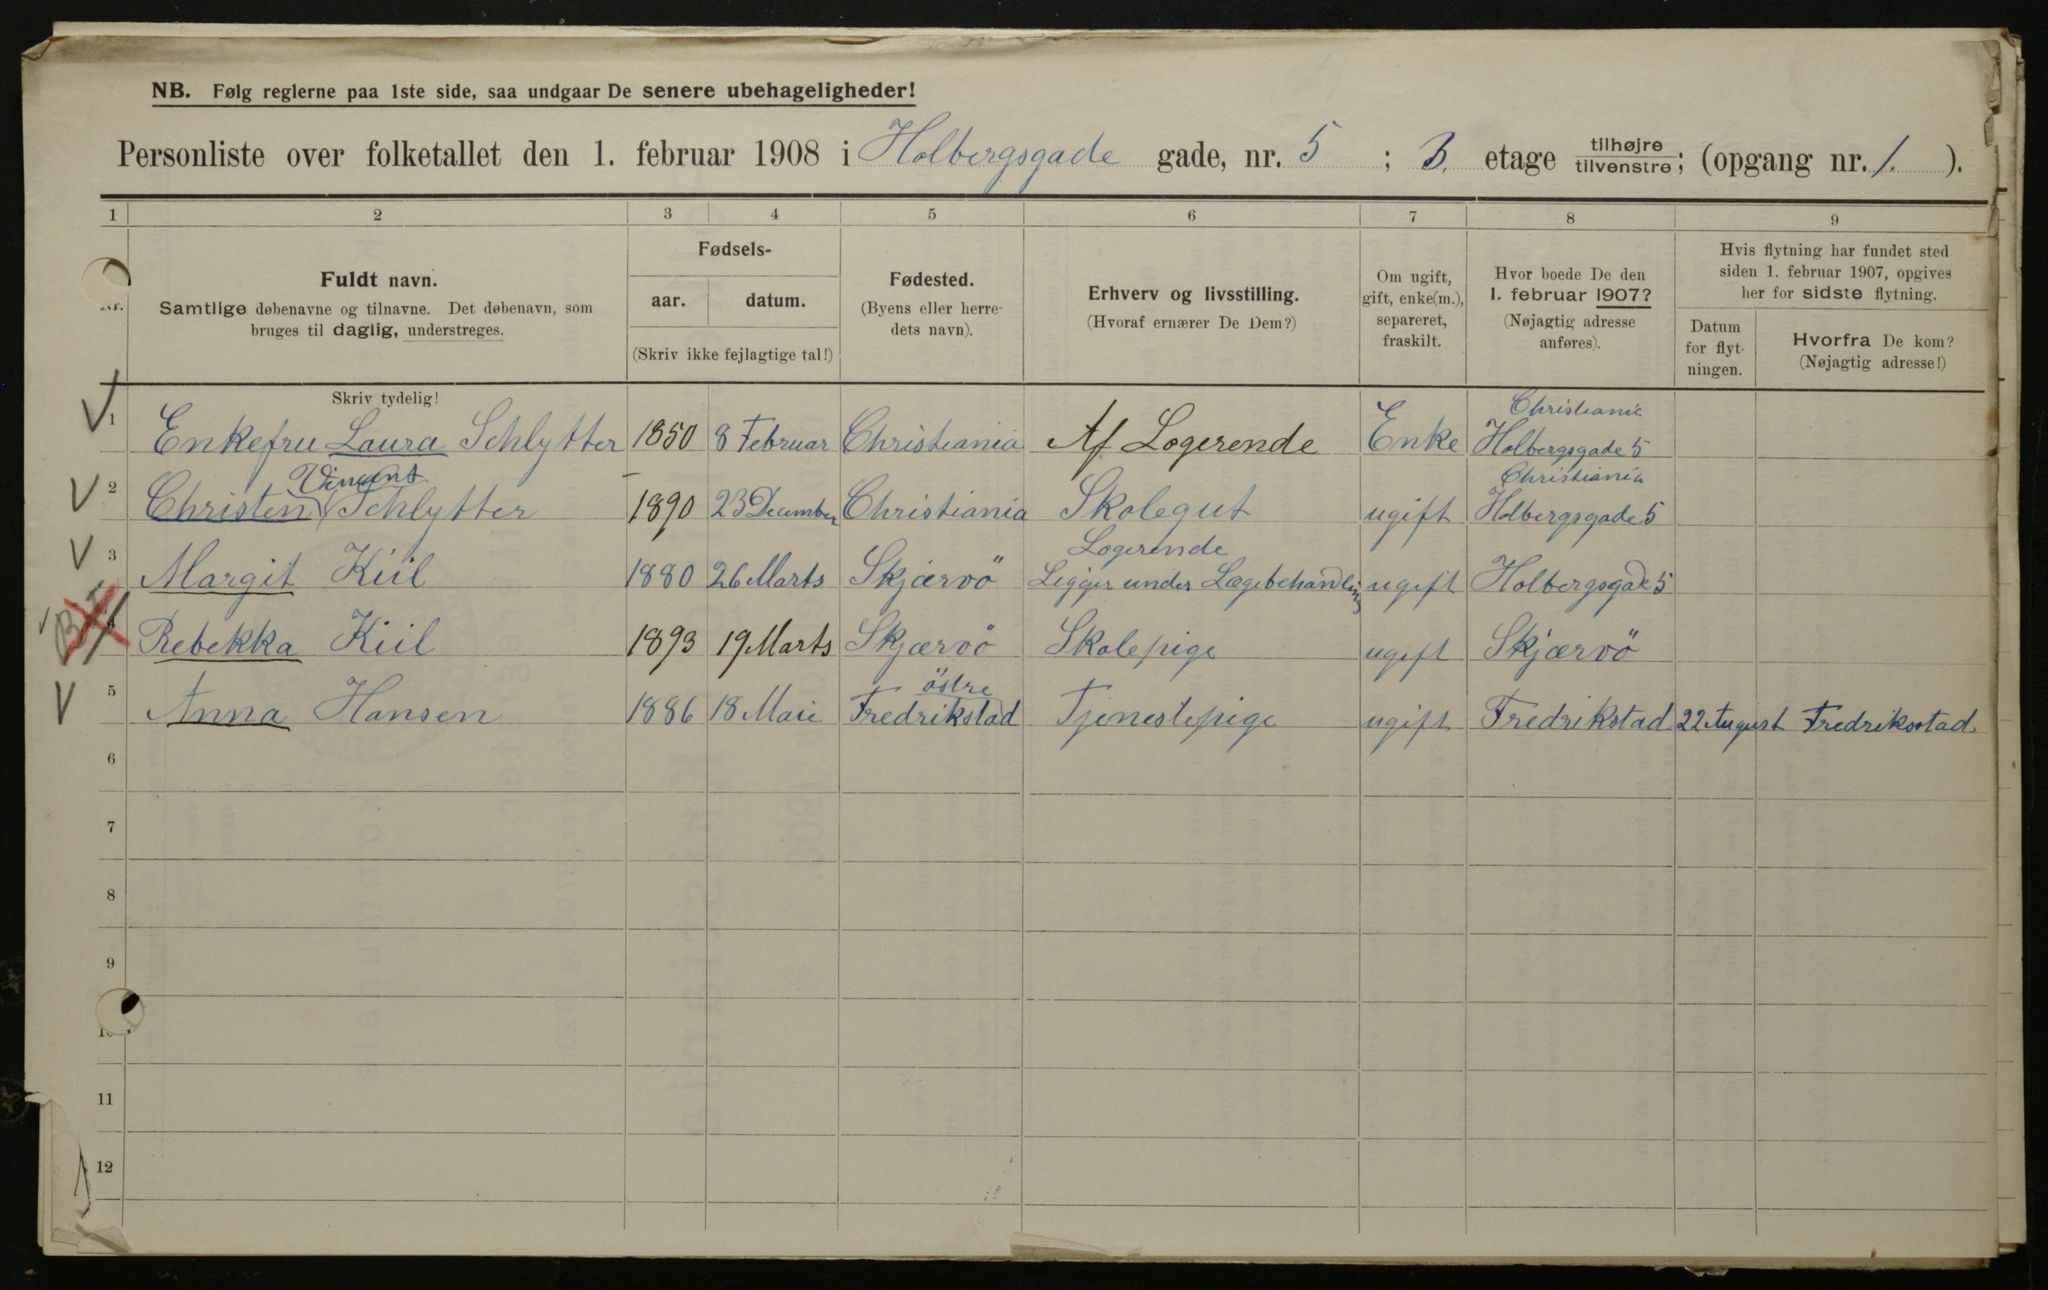 NB. Følg reglerne paa 1ste side, saa undgaar De senere ubehageligheder!
Personliste over folketallet den 1. februar 1908 i Holbergsgade gade, nr. 5 ; 3. etage tilhøjre tilvenstre; (opgang nr. 1. ).
1 2 3 4 5 6 7 8 9
Nr.
Fuldt navn.
Samtlige døbenavne og tilnavne. Det døbenavn, som
bruges til daglig, understreges.
Fødsels-
aar. datum.
(Skriv ikke fejlagtige tal!)
Fødested.
(Byens eller herre-
dets navn).
Erhverv og livsstilling.
(Hvoraf ernærer De Dem?)
Om ugift,
gift, enke(m.),
separeret,
fraskilt.
Hvor boede De den
1. februar 1907?
(Nøjagtig adresse
anføres).
Hvis flytning har fundet sted
siden 1. februar 1907, opgives
her for sidste flytning.
Datum
for flyt-
ningen.
Hvorfra De kom?
(Nøjagtig adresse!)
Skriv tydelig!
Christiania
1 Enkefru Laura Schlytter 1850 8 Februar Christiania Af Logerende Enke Holbergsgade 5
Christiania
2 Christen Schlytter 1890 23 December Christiania Skolegut ugift Holbergsgade 5
Logerende
3 Margit Kiil 1880 26 Marts Skjærvö Ligger under Lægebehandling ugift Holbergsgade 5
4 Rebekka Kiil 1893 19 Marts Skjærvö Skolepige ugift Skjærvö
östre
5 Anna Hansen 1886 18 Mai Fredrikstad Tjenestepige ugift Fredrikstad 22 August Fredrikstad
6
7
8
9
10
11
12